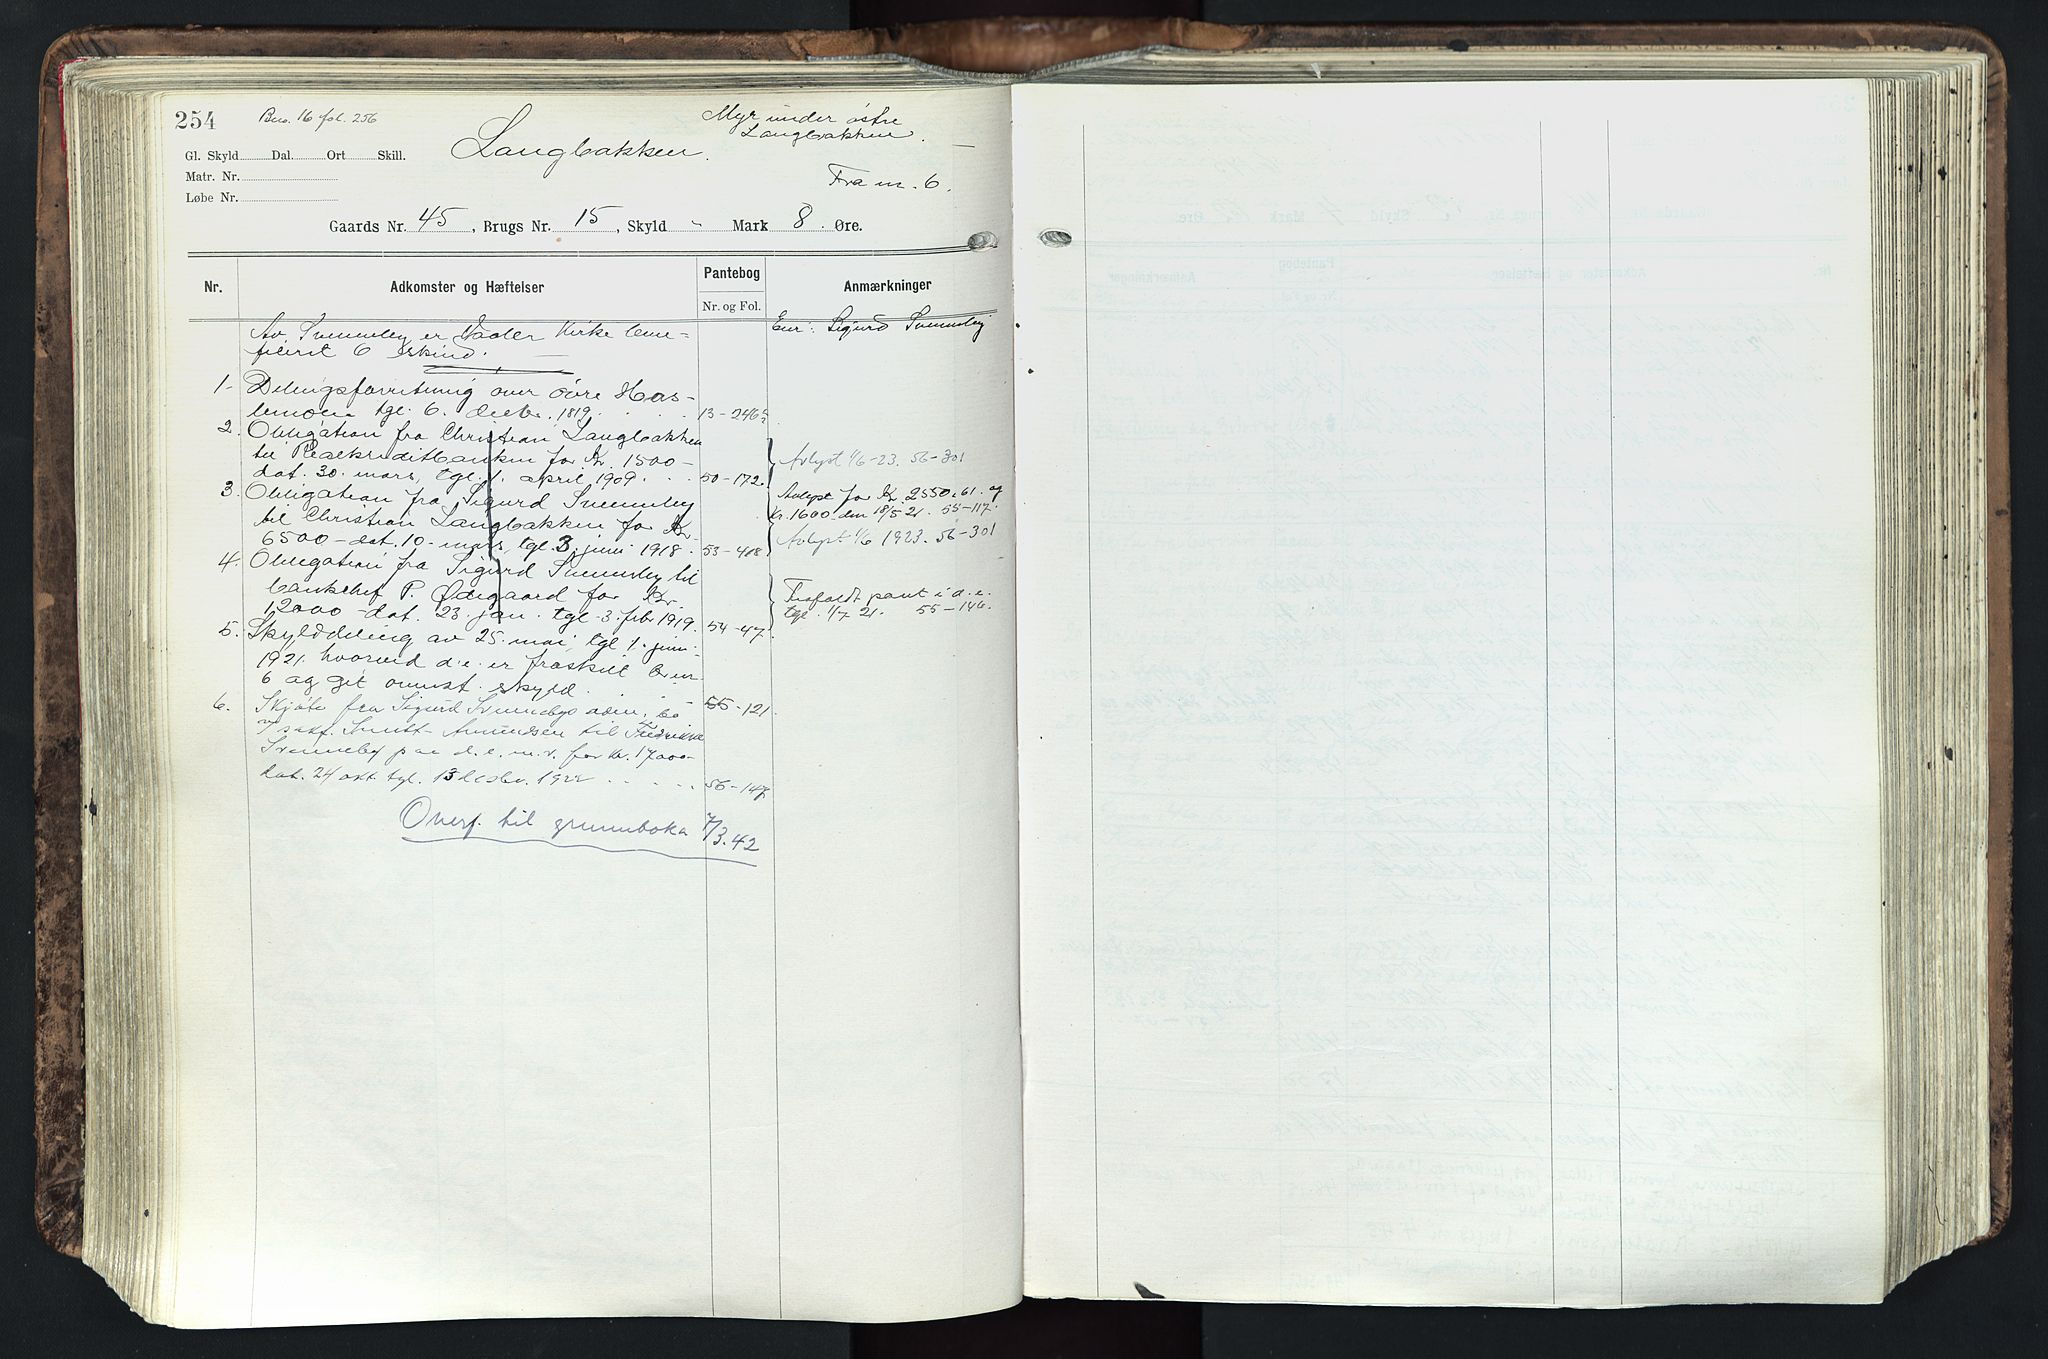 254 Bno. 16 fol. 256
Myr under østre
Langbakken.
Langbakken.
Gl. Skyld Dal. Ort Skill.
Matr. Nr.
Løbe Nr.
Fra nr. 6.
Gaards Nr. 45, Brugs Nr. 15, Skyld - Mark 8 Øre.
Nr. Adkomster og Hæftelser Pantebog Anmærkninger
Nr. og Fol.
Av Svenneby er Vaaler Kirke bene- Eier: Sigurd Svenneby
ficeret 6 skind.
1- Delingsforretning over øvre Has-
lemoen tgl. 6. decbr. 1819. 13-246
2. Obligation fra Christian Langbakken
til Realkreditbanken for Kr. 1500- Avlyst 1/6-23. 56-301
dat. 30. mars, tgl. 1. april 1909. 50-172
3. Obligation fra Sigurd Svenneby Avlyst for Kr. 2550.61. og
til Christian Langbakken for Kr. Kr. 1600- den 18/5 21. 55-117.
6500- dat. 10. mars, tgl. 3. juni 1918. 53-418 Avlyst 1/6 1923. 56-301
4. Obligation fra Sigurd Svenneby til
bankchef P. Ødegaard for Kr. Frafaldt pant i d.e.
12000- dat. 23. jan. tgl. 3. febr 1919. 54-47 tgl. 1/7 21. 55-146.
5. Skylddeling av 25. mai, tgl 1. juni
1921 hvorved d.e. er fraskilt Br nr.
6 og git ovenst. skyld. 55-121
6. Skjøte fra Sigurd Svennebys adm. bo
v/ sakf. Smidt- Amundsen til Fredrikke
Svenneby paa d.e. m.v. for kr. 17000-
dat. 24 okt. tgl. 13 desbr. 1922 56-147
Overf. til grunnboka 7/3.42